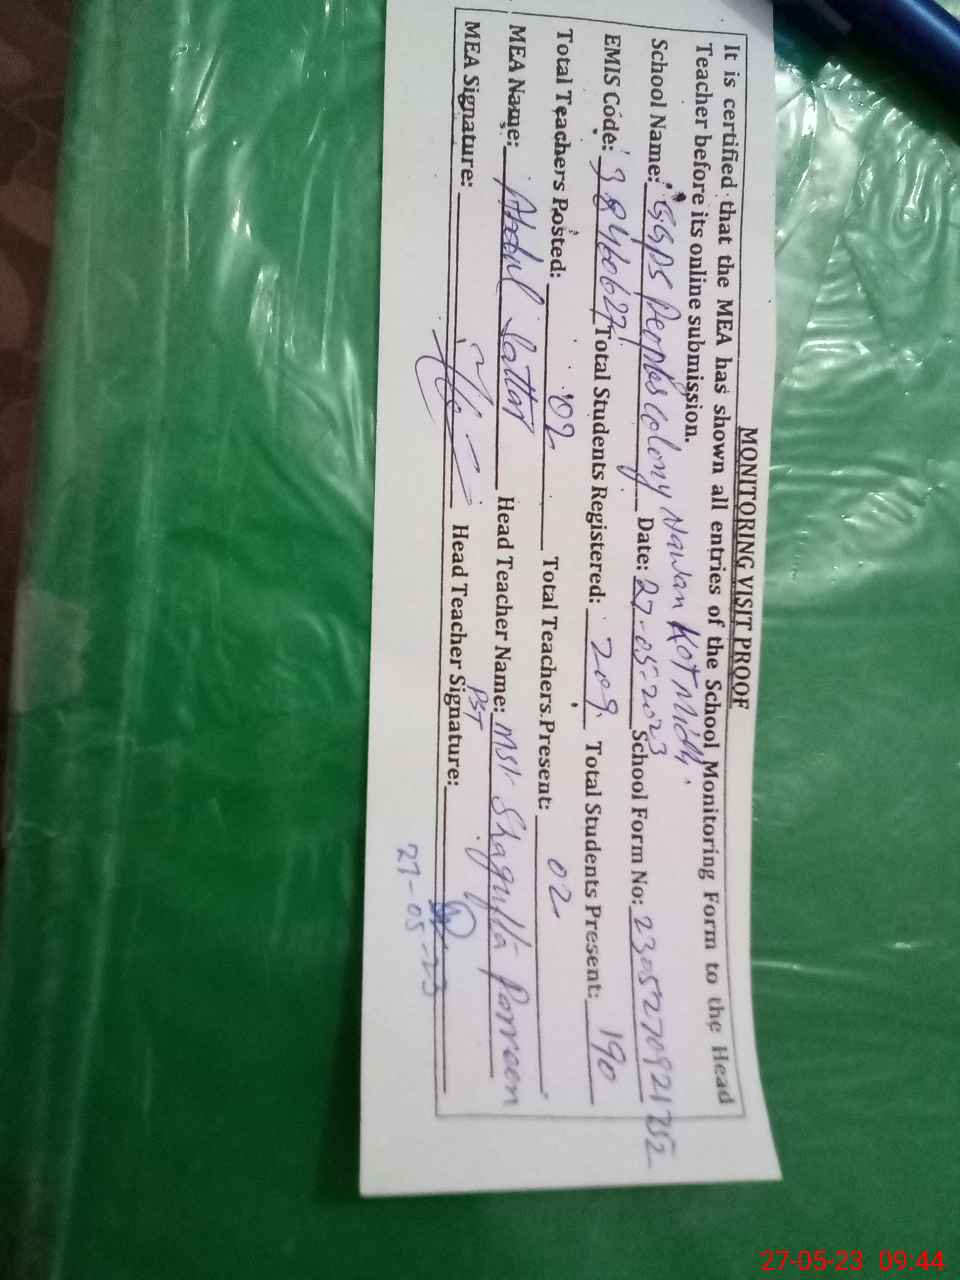 MONITORING VISIT PROOF
It is certified that the MEA has shown all entries of the School Monitoring Form to the Head
Teacher before its online submission.
School Name: GGPS Peoples Colony Nawan Kot Midh. Date: 27-05-2023 School Form No: 2305270921252
EMIS Code: 38460627 Total Students Registered: 209 Total Students Present: 190
Total Teachers Posted: 02 Total Teachers Present: 02
MEA Name: Abdul Sattar Head Teacher Name: Mst Shagufta Parveen
PST
MEA Signature: Head Teacher Signature:
27-05-23
27-05-23 09:44